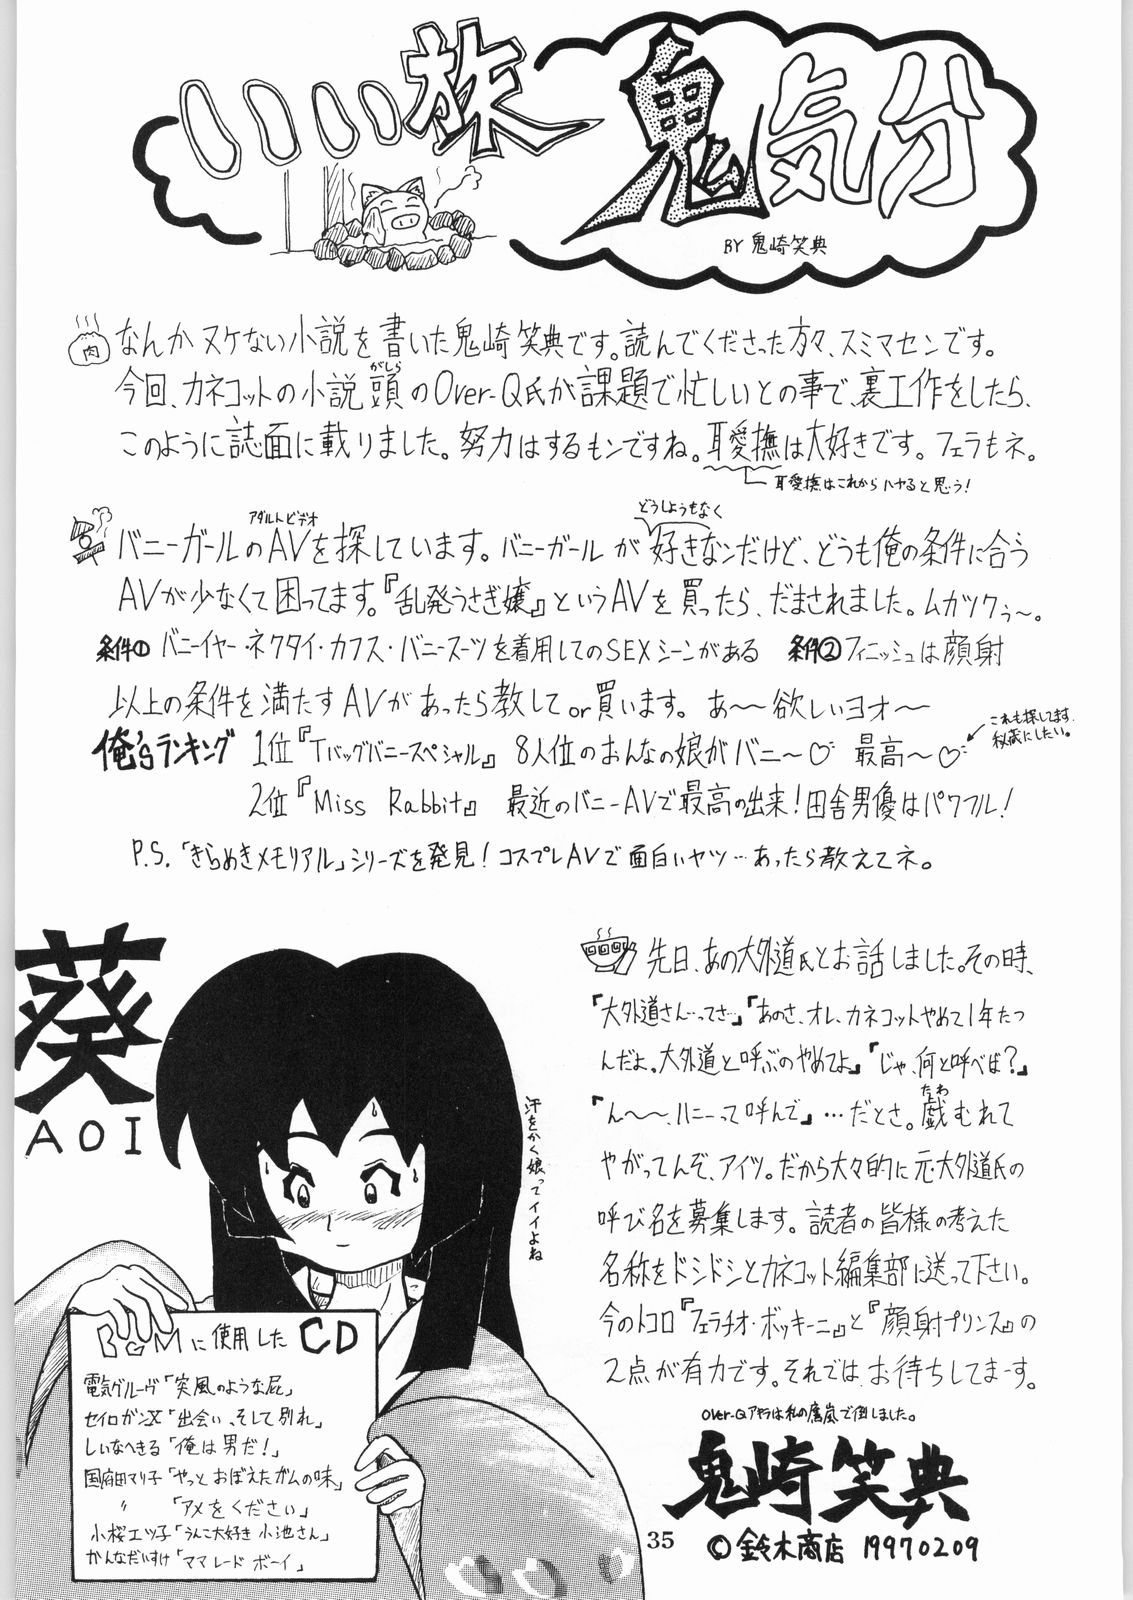 いい旅
鬼気分
BY 鬼崎笑典
肉
なんかヌケない小説を書いた鬼崎笑典です。読んでくださった方々、スミマセンです。
今回、カネコットの小説頭のOver-Q氏が課題で忙しいとの事で、裏工作をしたら、
がしら
このように誌面に載りました。努力はするモンですね。耳愛撫は大好きです。フェラもネ。
耳愛撫はこれからハヤると思う!
アダルトビデオ
どうしようもなく
バニーガールのAVを探しています。バニーガールが好きなンだけど、どうも俺の条件に合う
AVが少なくて困ってます。『乱発うさぎ嬢』というAVを買ったら、だまされました。ムカツクぅ〜。
条件① バニイヤー・ネクタイ・カフス・バニースーツを着用してのSEXシーンがある 条件② フィニッシュは顔射
以上の条件を満たすAVがあったら教して or 買います。あ〜〜欲しいヨオ〜
俺'sランキング 1位『Tバックバニースペシャル』 8人位のおんなの娘がバニ〜♡ 最高〜♡
これも探してます。
秘蔵にしたい。
2位『Miss Rabbit』 最近のバニーAVで最高の出来!田舎男優はパワフル!
P.S.「きらめきメモリアル」シリーズを発見!コスプレAVで面白いヤツ…あったら教えてネ。
葵
AOI
汗をかく娘ってイイよね
に使用したCD
電気グルーヴ「突風のような屁」
セイロガン乙「出会い、そして別れ」
しいなへきる「俺は男だ!」
国府田マリ子「やっとおぼえたガムの味」
〃 「アメをください」
小桜エツ子「うんこ大好き小池さん」
かんなだいすけ「ママレードボーイ」
先日、あの大外道氏とお話しました。その時、
『大外道さん…ってさ…』『あのさ、オレ、カネコットやめて1年たつ
んだよ。大外道と呼ぶのやめてよ』『じゃ、何と呼べば?』
『ん〜〜、ハニーって呼んで』…だとさ。戯むれて
たわ
やがってんぞ、アイツ。だから大々的に元・大外道氏の
呼び名を募集します。読者の皆様の考えた
名称をドシドシとカネコット編集部に送って下さい。
今のトコロ『フェラチオ・ボッキーニ』と『顔射プリンス』の
2点が有力です。それでは、お待ちしてまーす。
鬼崎笑典
35
©鈴木商店 19970209